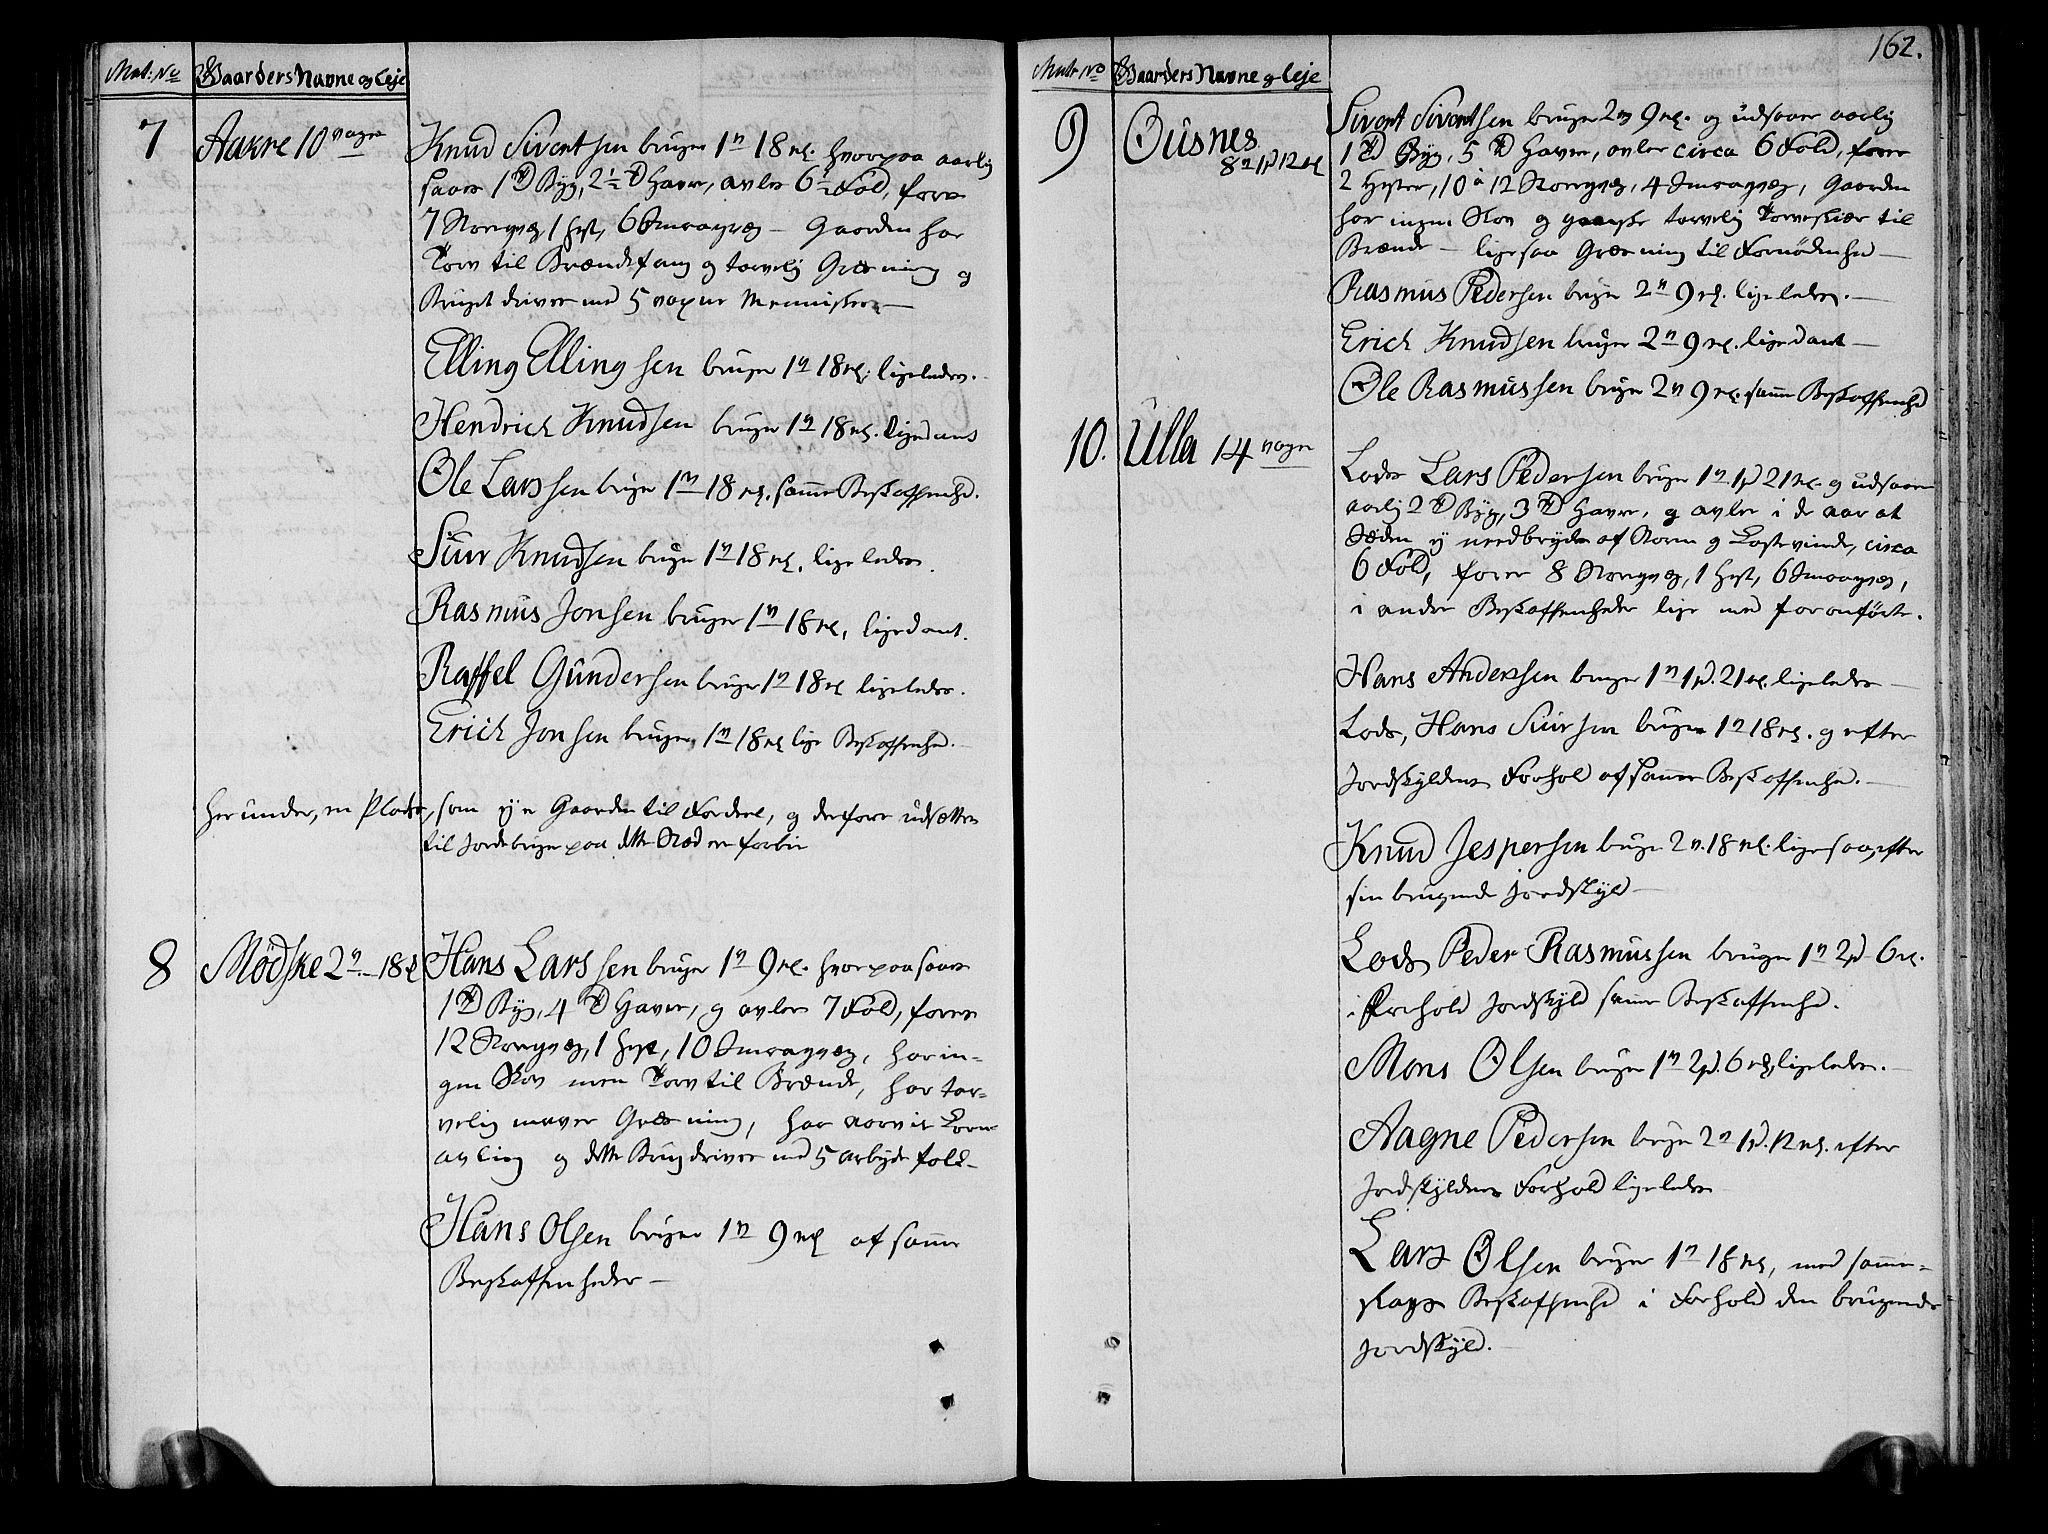 Mat: No Gaarders Navne og Leje
7 Aakre 10 voger
Knud Sivertsen bruger 1 v 18 mk. hvorpaa aarlig
saaes 1 Td Byg, 2½ Td Havre, avles 6½ Fold, føder
7 Storqvæg 1 Hest, 6 Smaaqvæg – Gaarden har
Torv til Brændefang og tarvelig Græsning og
Bruget drives med 5 voxne Mennisker –
Elling Ellingsen bruger 1 v 18 mk. ligeledes.
Hendrich Knudsen bruger 1 v 18 mk. ligedant
Ole Larssen bruger 1 v 18 mk. samme Beskaffenhed.
Siur Knudsen bruger 1 v 18 mk. ligeledes.
Rasmus Jonsen bruger 1 v 18 mk. ligedant.
Raffel Gundersen bruger 1 v 18 mk ligeledes.
Erich Jonsen bruger 1 v 18 mk lige Beskaffenhed. –
Herunder, en Plads, som ej er Gaarden til Fordeel, og derfore udsættes
til Jordebruger paa dette Sted er forbi
8 Mødske 2 v – 18 mk
Hans Larssen bruger 1 v 9 mk. hvorpaa saaes
1 Td Byg, 4 Td Havre, og avles 7 Fold, føder
12 Storqvæg, 1 Hest, 10 Smaaqvæg, har in-
gen Skov men Torv til Brænde, har tar-
velig maver Græsning, har aarvis Korn-
avling og dette Brug drives med 5 arbejdsfolk –
Hans Olsen bruger 1 v 9 mk af samme
Beskaffenheder –
162.
Matr No Gaarders Navne og Leje
9 Ousnes
8 v 1 p 12 mk
Sivert Sivertsen bruger 2 v 9 mk. og udsaaer aarlig
1 Td Byg, 5 Td Havre, avler circa 6 Fold, føder
2 Hester, 10 à 12 Storqvæg, 4 Smaaqvæg, Gaarden
har ingen Skov og ganske tarvelig Torveskiær til
Brænde – ligesaa Græsning til Fornødenhed –
Rasmus Pedersen bruger 2 v 9 mk. ligeledes. –
Erich Knudsen bruger 2 v 9 mk. ligedant –
Ole Rasmussen bruger 2 v 9 mk. samme Beskaffenhed
10. Ulla 14 voger
Lods Lars Pedersen bruger 1 v 1 p 21 mk. og udsaaer
aarlig 2 Td Byg, 3 Td Havre, og avler i de aar at
Sæden ej nedbrydes af Storm og Kastevinde, circa
6 Fold, føder 8 Storqvæg, 1 Hest, 6 Smaaqvæg,
i andre Beskaffenheder lige med foranførte.
Hans Anderssen bruger 1 v 1 p. 21 mk. ligeledes –
Lods, Hans Siursen bruger 1 v 18 mk. og efter
Jordskyldens Forhold af samme Beskaffenhed. –
Knud Jespersen bruger 2 v. 18 mk. ligesaa, efter
sin brugende Jordskyld –
Lods Peder Rasmussen bruger 1 v 2 p 6 mk.
i Forhold Jordskyld samme Beskaffenhed.
Mons Olsen bruger 1 v 2 p. 6 mk, ligeledes. –
Aagne Pedersen bruger 2 v 1 p. 12 mk. efter
Jordskyldens Forhold ligeledes
Lars Olsen bruger 1 v 18 mk, med samme
slags Beskaffenhed i Forhold den brugende
Jordskyld. –